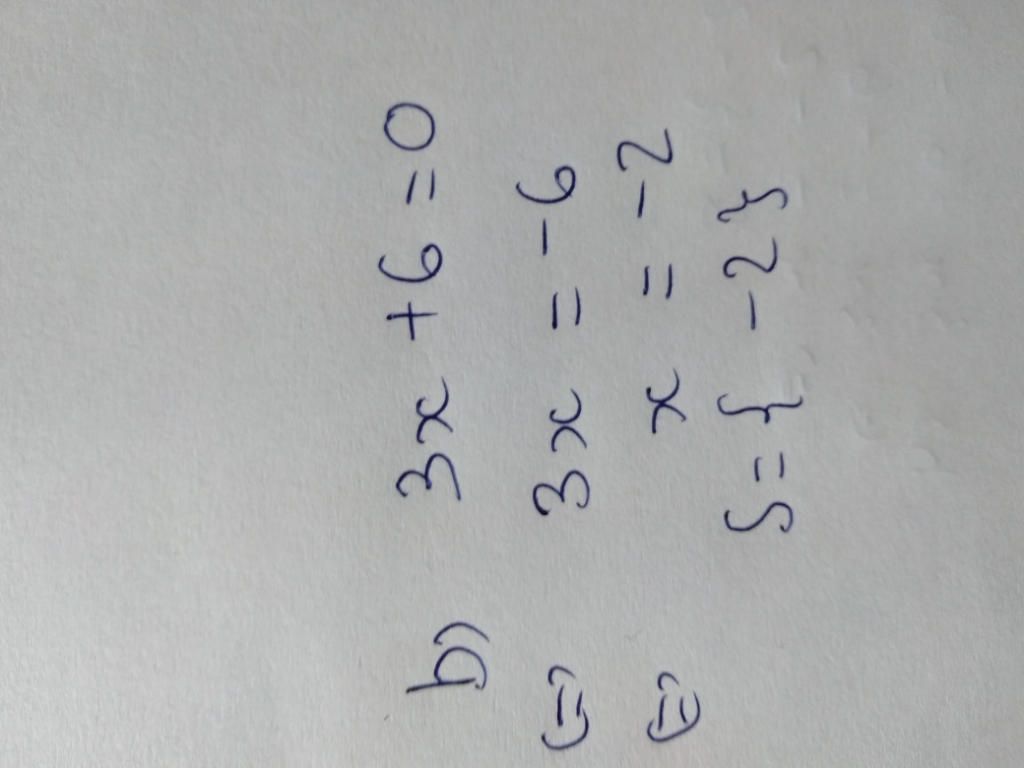 b) 3x + 6 = 0
(=) 3x = -6
(=) x = -2
S = { -2 }